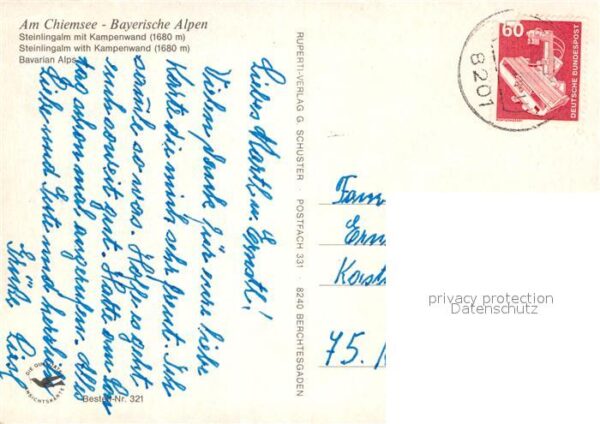 Am Chiemsee - Bayerische Alpen
Steinlingalm mit Kampenwand (1680 m)
Steinlingalm with Kampenwand (1680 m)
Bavarian Alps
Liebes Martl u. Ernstl!
Vielen Dank für eure liebe
Karte die mich sehr freut. Ich
so was. Hoffe es geht
euch soweit gut. Hatte am
tag schon mal angerufen. Alles
Liebe und Gute und herzliche
Grüße Liesl
Bestell-Nr. 321
RUPERTI-VERLAG G. SCHUSTER · POSTFACH 331 · 8240 BERCHTESGADEN
60
DEUTSCHE BUNDESPOST
8201
Fam
Ern
75.
privacy protection
Datenschutz